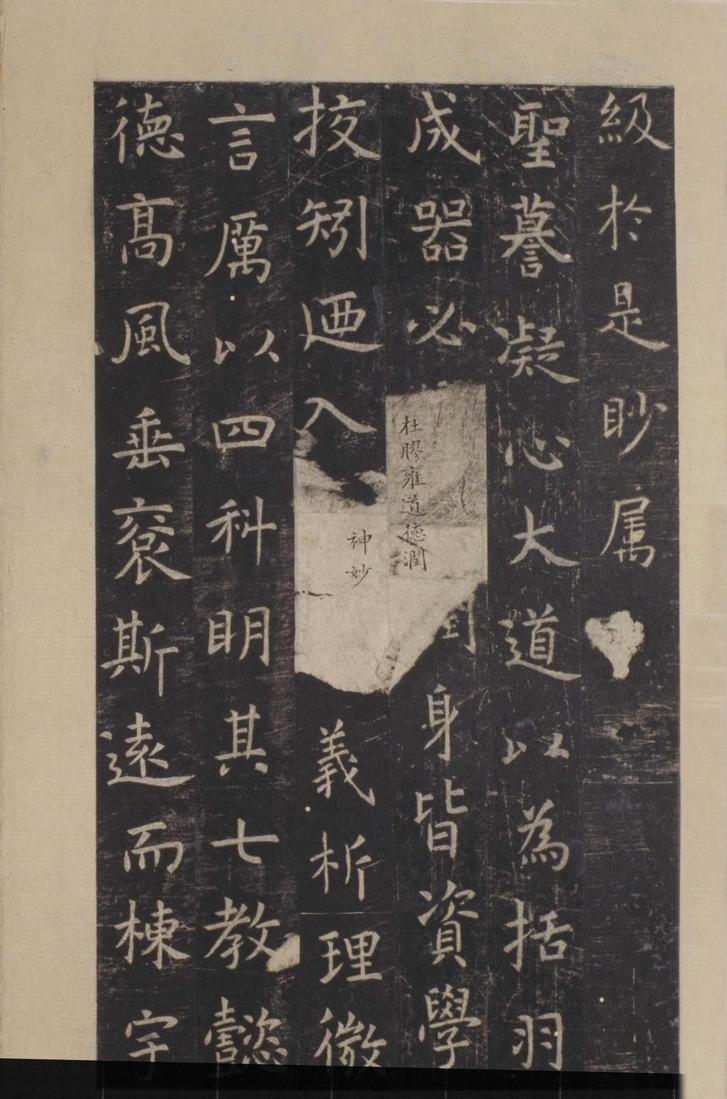 級於是眇属
聖謩凝心大道以為括羽
成器必
杜膠雍道德潤
身皆資學
挍矧迺入
神妙
義析理微
言厲以四科明其七教懿
德髙風垂裒斯遠而棟宇